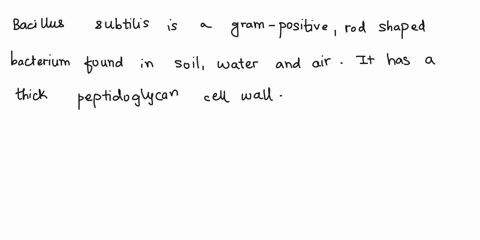 Bacillus subtilis is a gram-positive, rod shaped
bacterium found in soil, water and air. It has a
thick peptidoglycan cell wall.